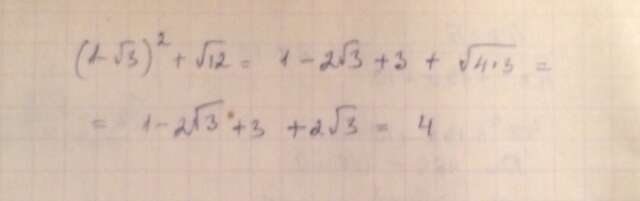 (1-√3)² + √12 = 1 - 2√3 + 3 + √4·3 =
= 1 - 2√3 + 3 + 2√3 = 4